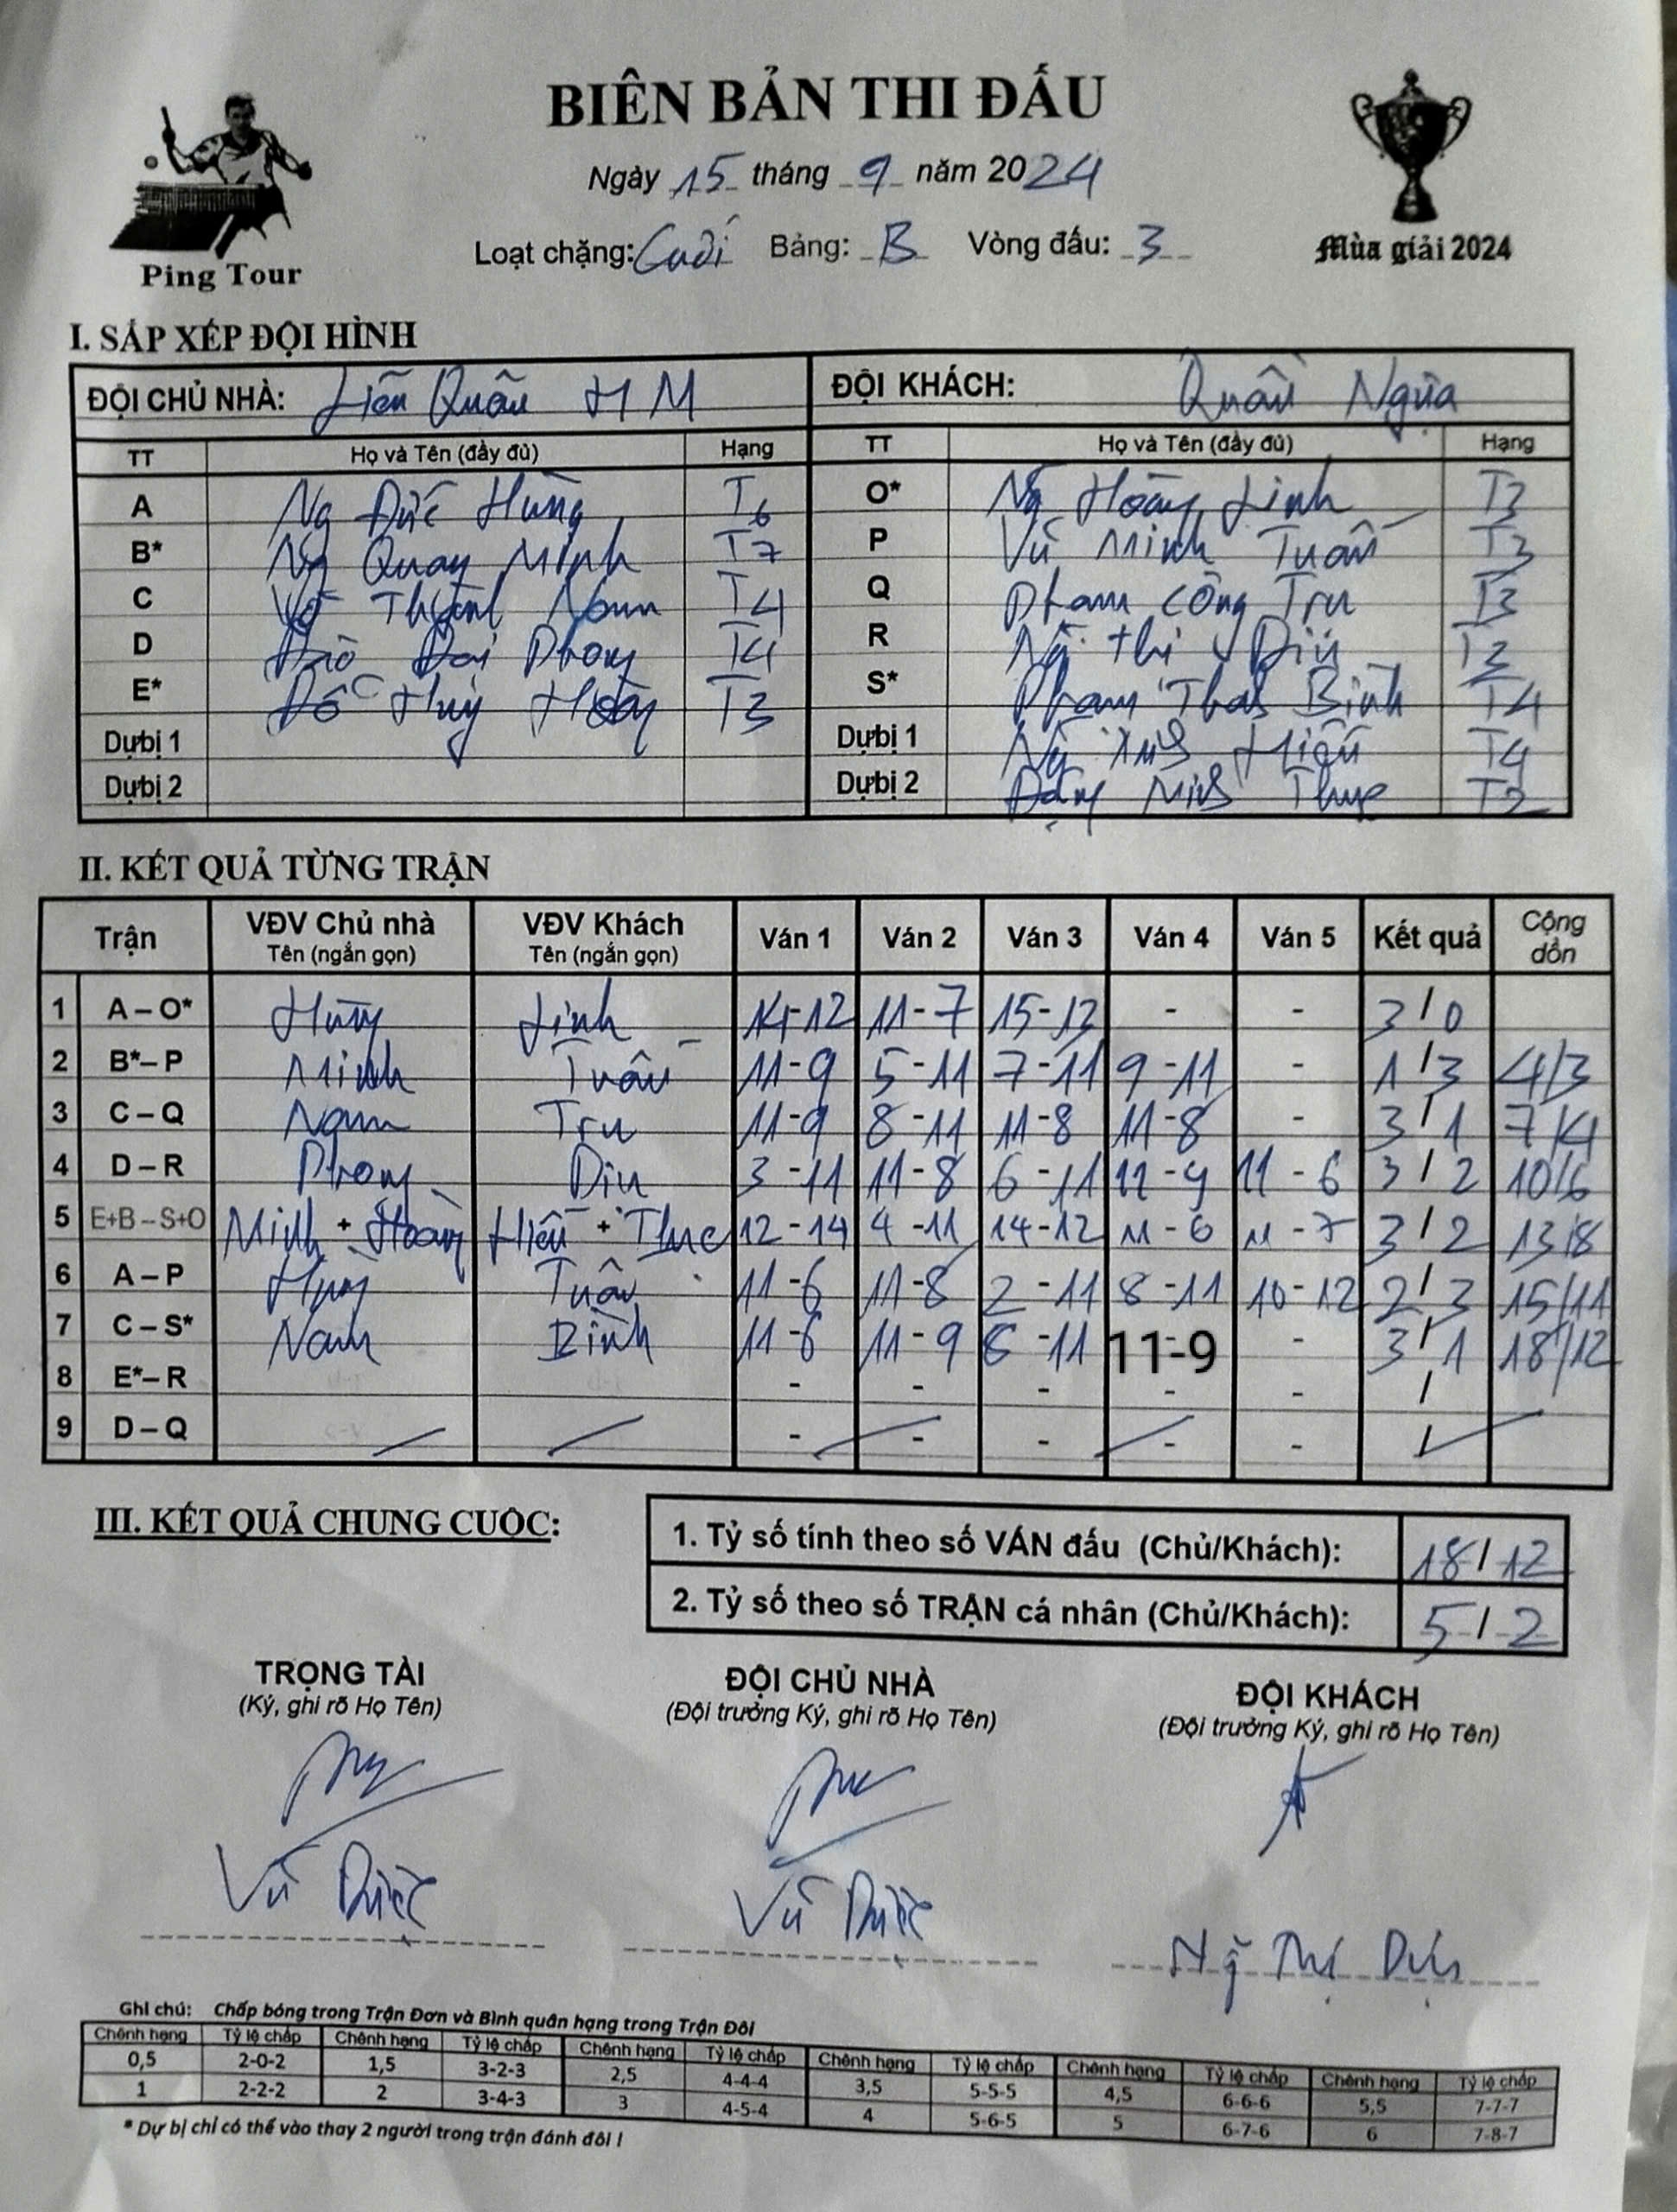 BIÊN BẢN THI ĐẤU
Ngày 15 tháng 9 năm 2024
Loạt chặng: Cuối Bảng: B Vòng đấu: 3
Ping Tour
Mùa giải 2024
I. SẮP XẾP ĐỘI HÌNH
ĐỘI CHỦ NHÀ: Liên Quân HM ĐỘI KHÁCH: Quần Ngựa
TT Họ và Tên (đầy đủ) Hạng TT Họ và Tên (đầy đủ) Hạng
A Ng Đức Hùng T6 O* Ng Hoàng Linh T3
B* Ng Quang Minh T7 P Vũ Minh Tuấn T3
C Võ Thành Nam T4 Q Phạm Công Trư T3
D Đào Đại Phong T4 R Ng Thị Dịu T3
E* Đỗ Huy Hoàng T3 S* Phạm Thái Bình T4
Dự bị 1 Dự bị 1 Ng Hiếu T4
Dự bị 2 Dự bị 2 Đặng Minh Thục T2
II. KẾT QUẢ TỪNG TRẬN
Trận VĐV Chủ nhà VĐV Khách Ván 1 Ván 2 Ván 3 Ván 4 Ván 5 Kết quả Cộng dồn
Tên (ngắn gọn) Tên (ngắn gọn)
1 A – O* Hùng Linh 14-12 11-7 15-13 - - 3/0
2 B* – P Minh Tuấn 11-9 5-11 7-11 9-11 - 1/3 4/3
3 C – Q Nam Trư 11-9 8-11 11-8 11-8 - 3/1 7/4
4 D – R Phong Dịu 3-11 11-8 6-11 11-9 11-6 3/2 10/6
5 E+B – S+O Minh + Hoàng Hiếu + Thục 12-14 4-11 14-12 11-6 11-7 3/2 13/8
6 A – P Hùng Tuấn 11-6 11-8 2-11 8-11 10-12 2/3 15/11
7 C – S* Nam Bình 11-6 11-9 6-11 11-9 - 3/1 18/12
8 E* – R - - - - - /
9 D – Q - - - - - /
III. KẾT QUẢ CHUNG CUỘC:
1. Tỷ số tính theo số VÁN đấu (Chủ/Khách): 18/12
2. Tỷ số theo số TRẬN cá nhân (Chủ/Khách): 5/2
TRỌNG TÀI ĐỘI CHỦ NHÀ ĐỘI KHÁCH
(Ký, ghi rõ Họ Tên) (Đội trưởng Ký, ghi rõ Họ Tên) (Đội trưởng Ký, ghi rõ Họ Tên)
Vũ Được Vũ Được Ng Thị Dịu
Ghi chú: Chấp bóng trong Trận Đơn và Bình quân hạng trong Trận Đôi
Chênh hạng Tỷ lệ chấp Chênh hạng Tỷ lệ chấp Chênh hạng Tỷ lệ chấp Chênh hạng Tỷ lệ chấp Chênh hạng Tỷ lệ chấp Chênh hạng Tỷ lệ chấp
0,5 2-0-2 1,5 3-2-3 2,5 4-4-4 3,5 5-5-5 4,5 6-6-6 5,5 7-7-7
1 2-2-2 2 3-4-3 3 4-5-4 4 5-6-5 5 6-7-6 6 7-8-7
* Dự bị chỉ có thể vào thay 2 người trong trận đánh đôi !